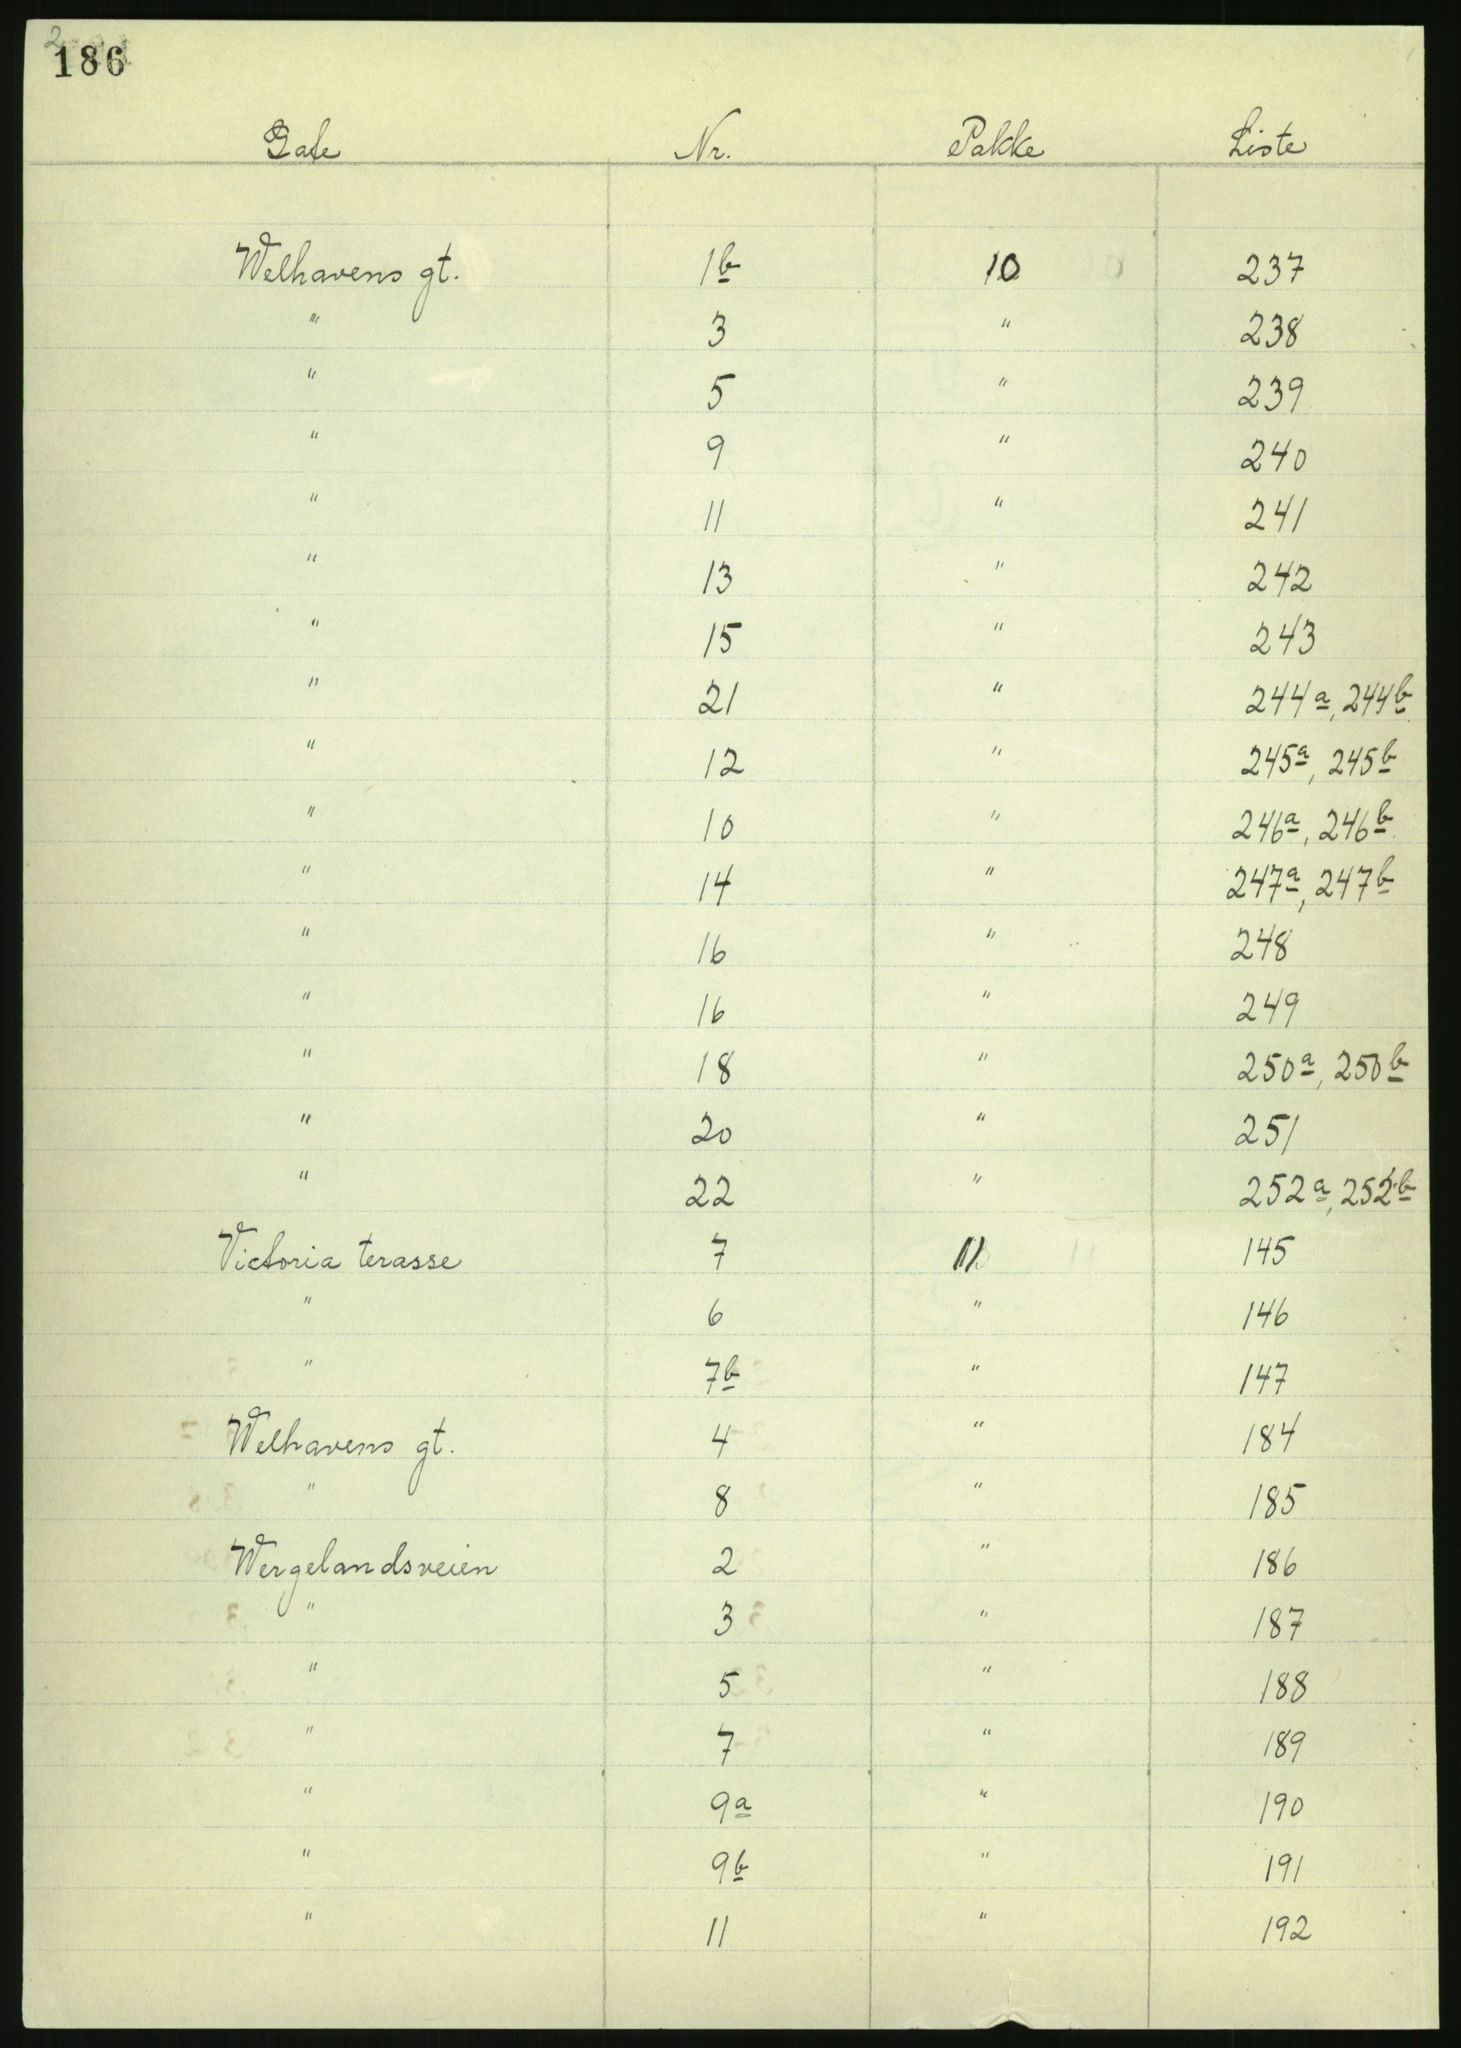 186
Gate Nr. Pakke Liste
Welhavens gt. 1b 10 237
" 3 " 238
" 5 " 239
" 9 " 240
" 11 " 241
" 13 " 242
" 15 " 243
" 21 " 244a, 244b
" 12 " 245a, 245b
" 10 " 246a, 246b
" 14 " 247a, 247b
" 16 " 248
" 16 " 249
" 18 " 250a, 250b
" 20 " 251
" 22 " 252a, 252b
Victoria terasse 7 11 145
" 6 " 146
" 7b " 147
Welhavens gt. 4 " 184
" 8 " 185
Wergelandsveien 2 " 186
" 3 " 187
" 5 " 188
" 7 " 189
" 9a " 190
" 9b " 191
" 11 " 192